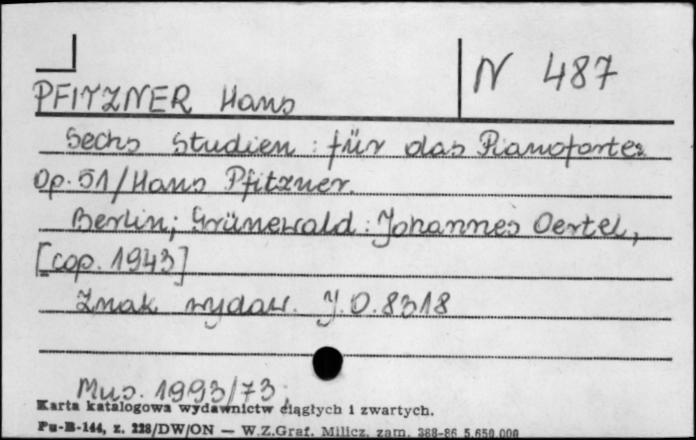 N 487
PFITZNER Hans
Sechs Studien : für das Pianoforte
Op. 51/Hans Pfitzner.
Berlin; Grünewald : Johannes Oertel,
[cop. 1943]
Znak wydaw. J.O.8318
Mus. 1993/73
Karta katalogowa wydawnictw ciągłych i zwartych.
Pu-B-144, z. 228/DW/ON — W.Z.Graf. Milicz, zam. 388-86 5.650.000